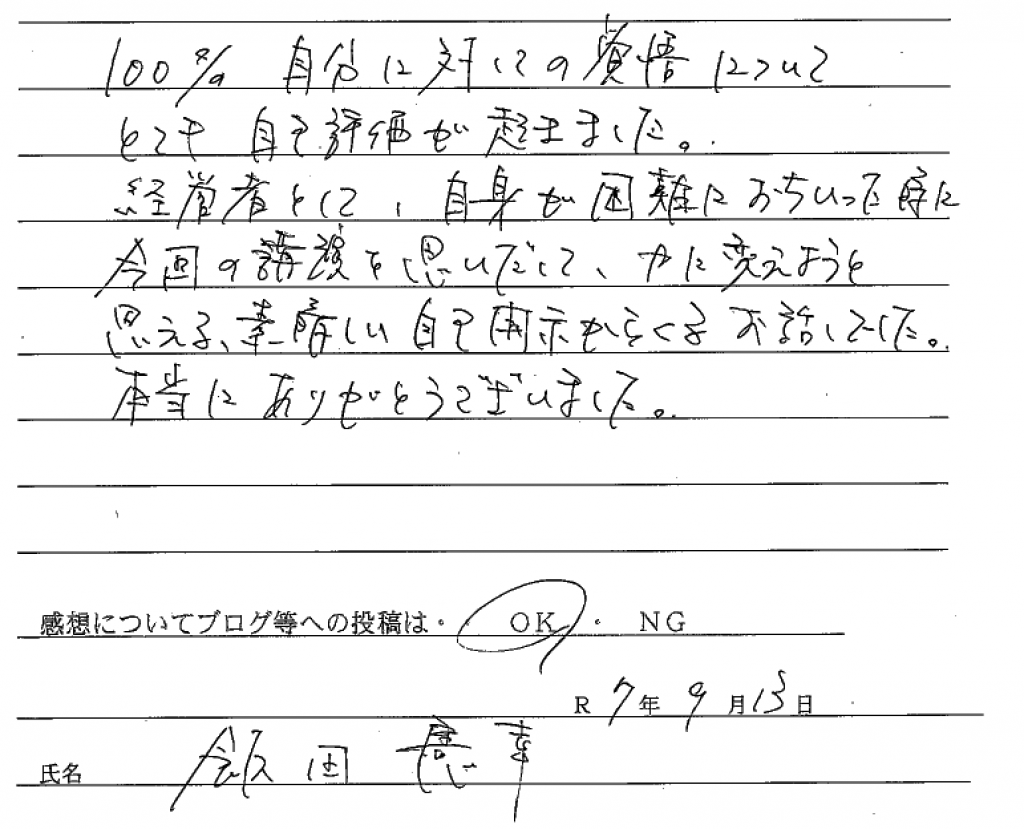 100% 自分に対しての覚悟について
とても 自己評価が 起きました。
経営者として、自身が困難におちいった時に
今回の講演を思いだして、力に変えようと
思える、素晴しい自己開示からくるお話しでした。
本当に ありがとうございました。
感想についてブログ等への投稿は・ OK ・ NG
R 7年 9月13日
氏名 飯田